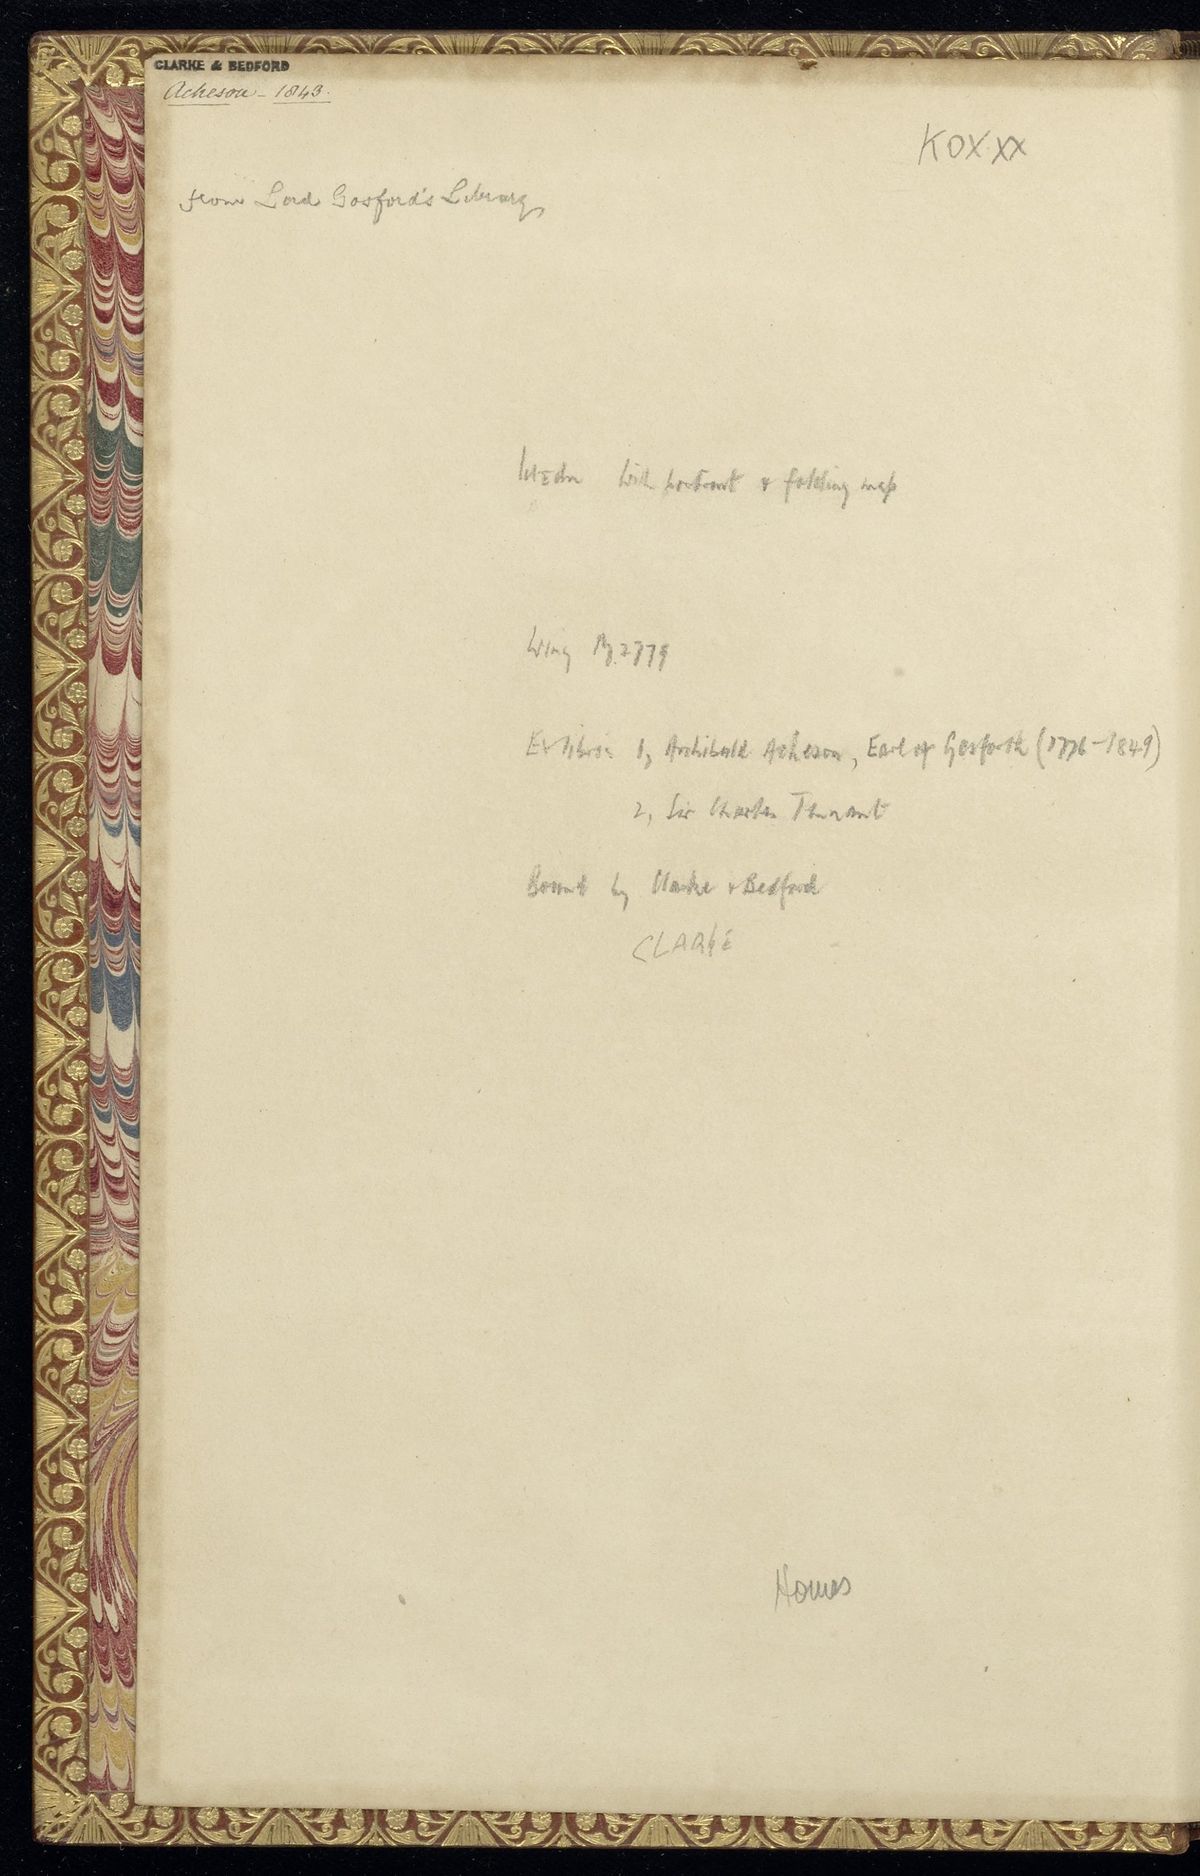 CLARKE & BEDFORD
Acheson - 1843.
KOX.XX
from Lord Gosford's Library
1st Edn with portrait & folding map
Wing 2779
Ex libris 1, Archibald Acheson, Earl of Gosforth (1776-1849)
2, Sir Charles Tennant
Bound by Clarke & Bedford
CLARKE